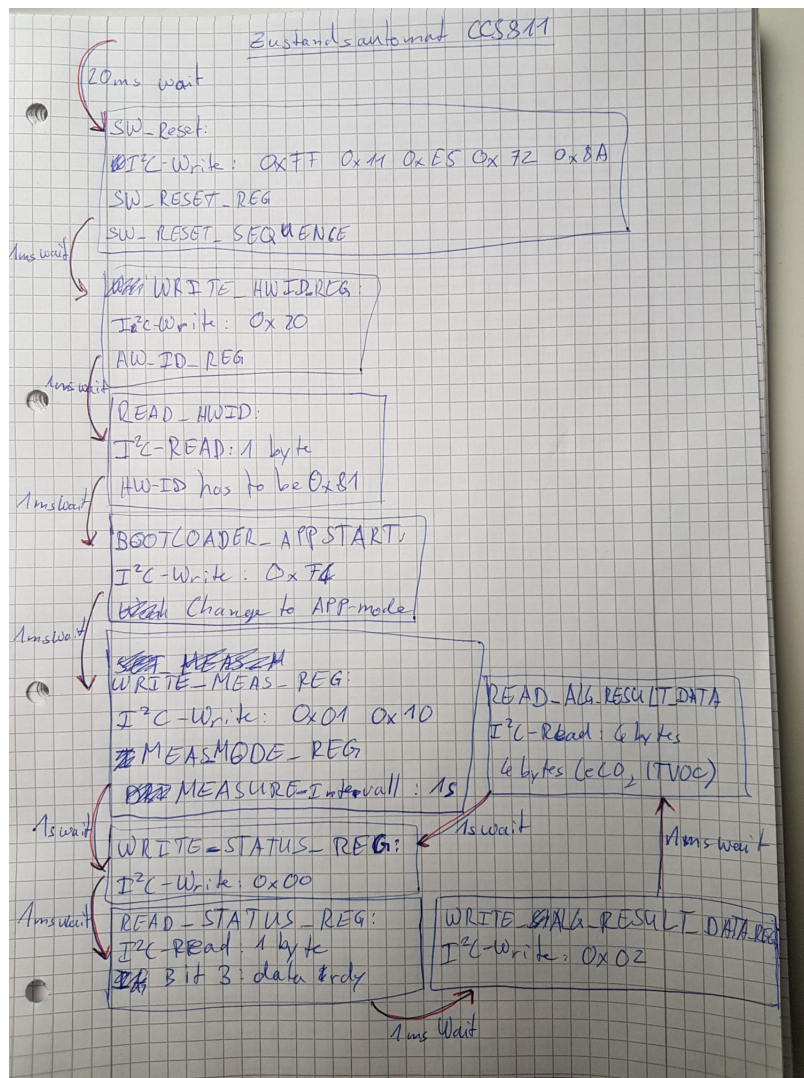 Zustandsautomat CCS811
20ms wait
SW_Reset:
I²C-Write: 0xFF 0x11 0xE5 0x72 0x8A
SW_RESET_REG
SW_RESET_SEQUENCE
1ms wait
WRITE_HWID_REG:
I²C-Write: 0x20
HW-ID_REG
1ms wait
READ_HWID:
I²C-READ: 1 byte
HW-ID has to be 0x81
1ms wait
BOOTLOADER_APPSTART:
I²C-Write: 0xF4
Change to APP-mode
1ms wait
WRITE_MEAS_REG:
I²C-Write: 0x01 0x10
MEASMODE_REG
MEASURE-Intervall: 1s
1s wait
WRITE-STATUS_REG:
I²C-Write: 0x00
1ms wait
READ_STATUS_REG:
I²C-Read: 1 byte
Bit 3: data rdy
1ms Wait
WRITE_ALG_RESULT_DATA_REG
I²C-Write: 0x02
1ms wait
READ_ALG_RESULT_DATA
I²C-Read: 4 bytes
4 bytes (eCO₂, TVOC)
1s wait